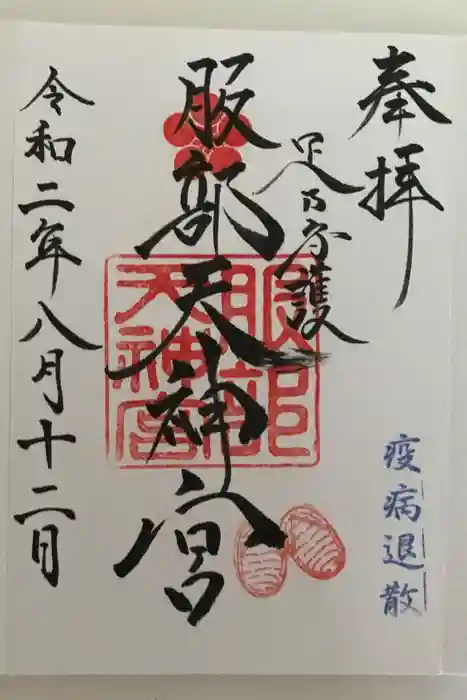 奉拝
疫病退散
足乃守護
服部天神宮
服部
天神宮
令和二年八月十二日